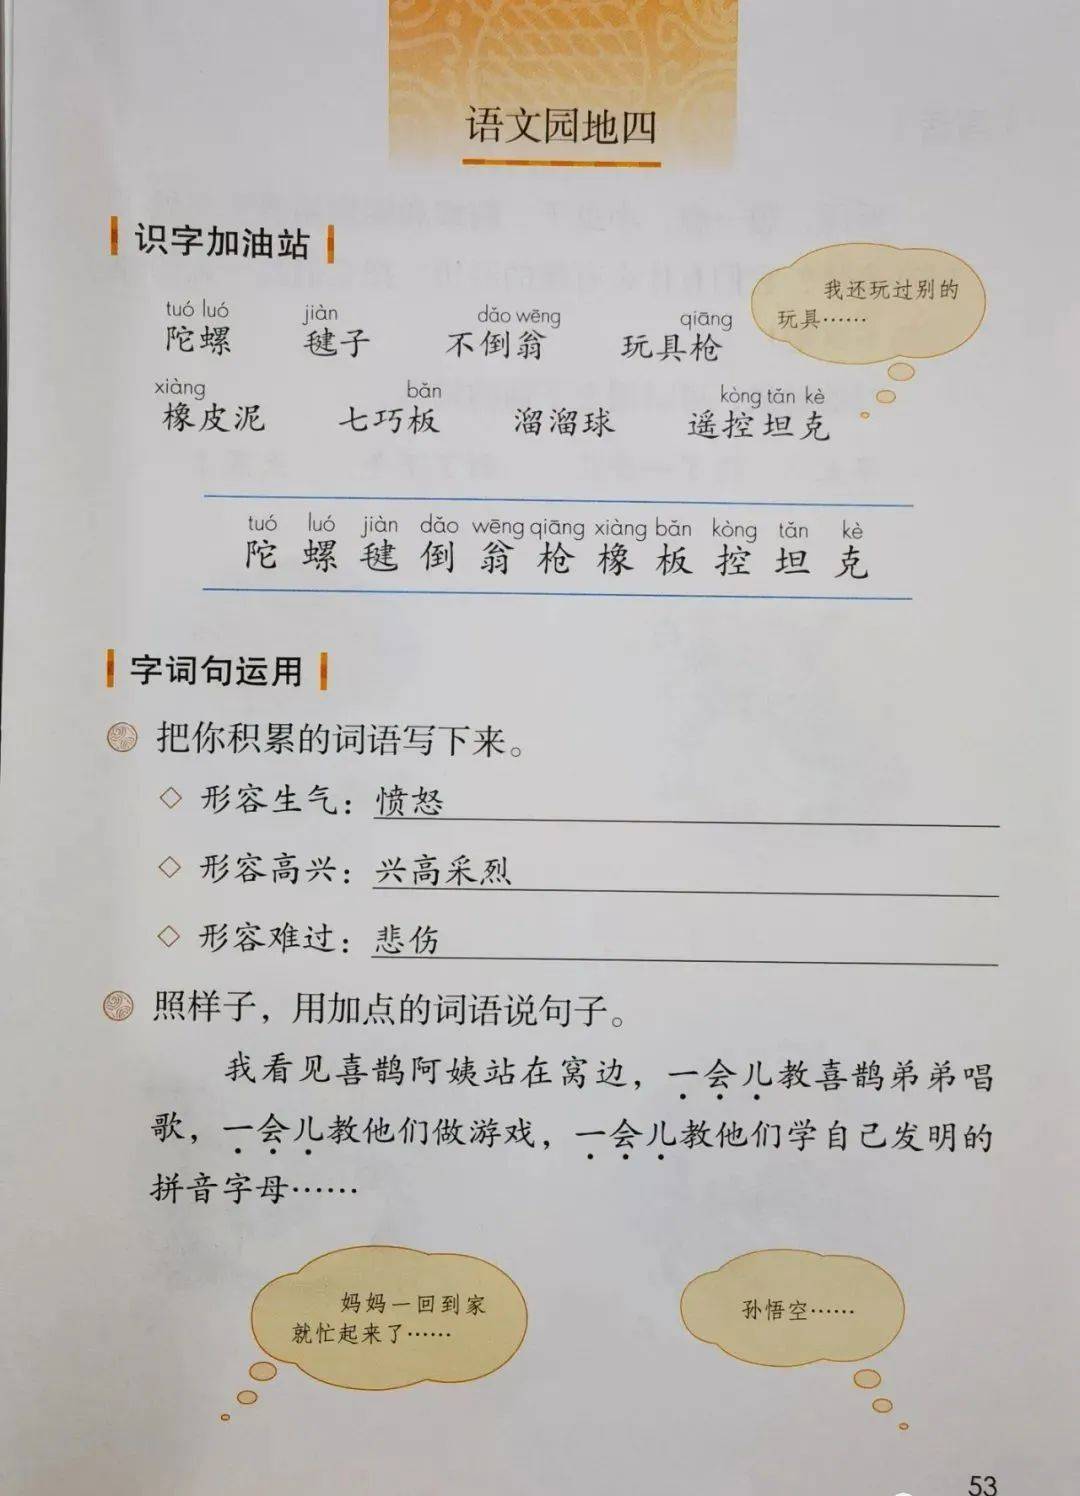 语文园地四
识字加油站
我还玩过别的
玩具……
tuó luó jiàn dǎo wēng qiāng
陀螺 毽子 不倒翁 玩具枪
xiàng bǎn kòng tǎn kè
橡皮泥 七巧板 溜溜球 遥控坦克
tuó luó jiàn dǎo wēng qiāng xiàng bǎn kòng tǎn kè
陀 螺 毽 倒 翁 枪 橡 板 控 坦 克
字词句运用
把你积累的词语写下来。
◇ 形容生气：愤怒
◇ 形容高兴：兴高采烈
◇ 形容难过：悲伤
照样子，用加点的词语说句子。
我看见喜鹊阿姨站在窝边，一会儿教喜鹊弟弟唱
歌，一会儿教他们做游戏，一会儿教他们学自己发明的
拼音字母……
妈妈一回到家
就忙起来了……
孙悟空……
53